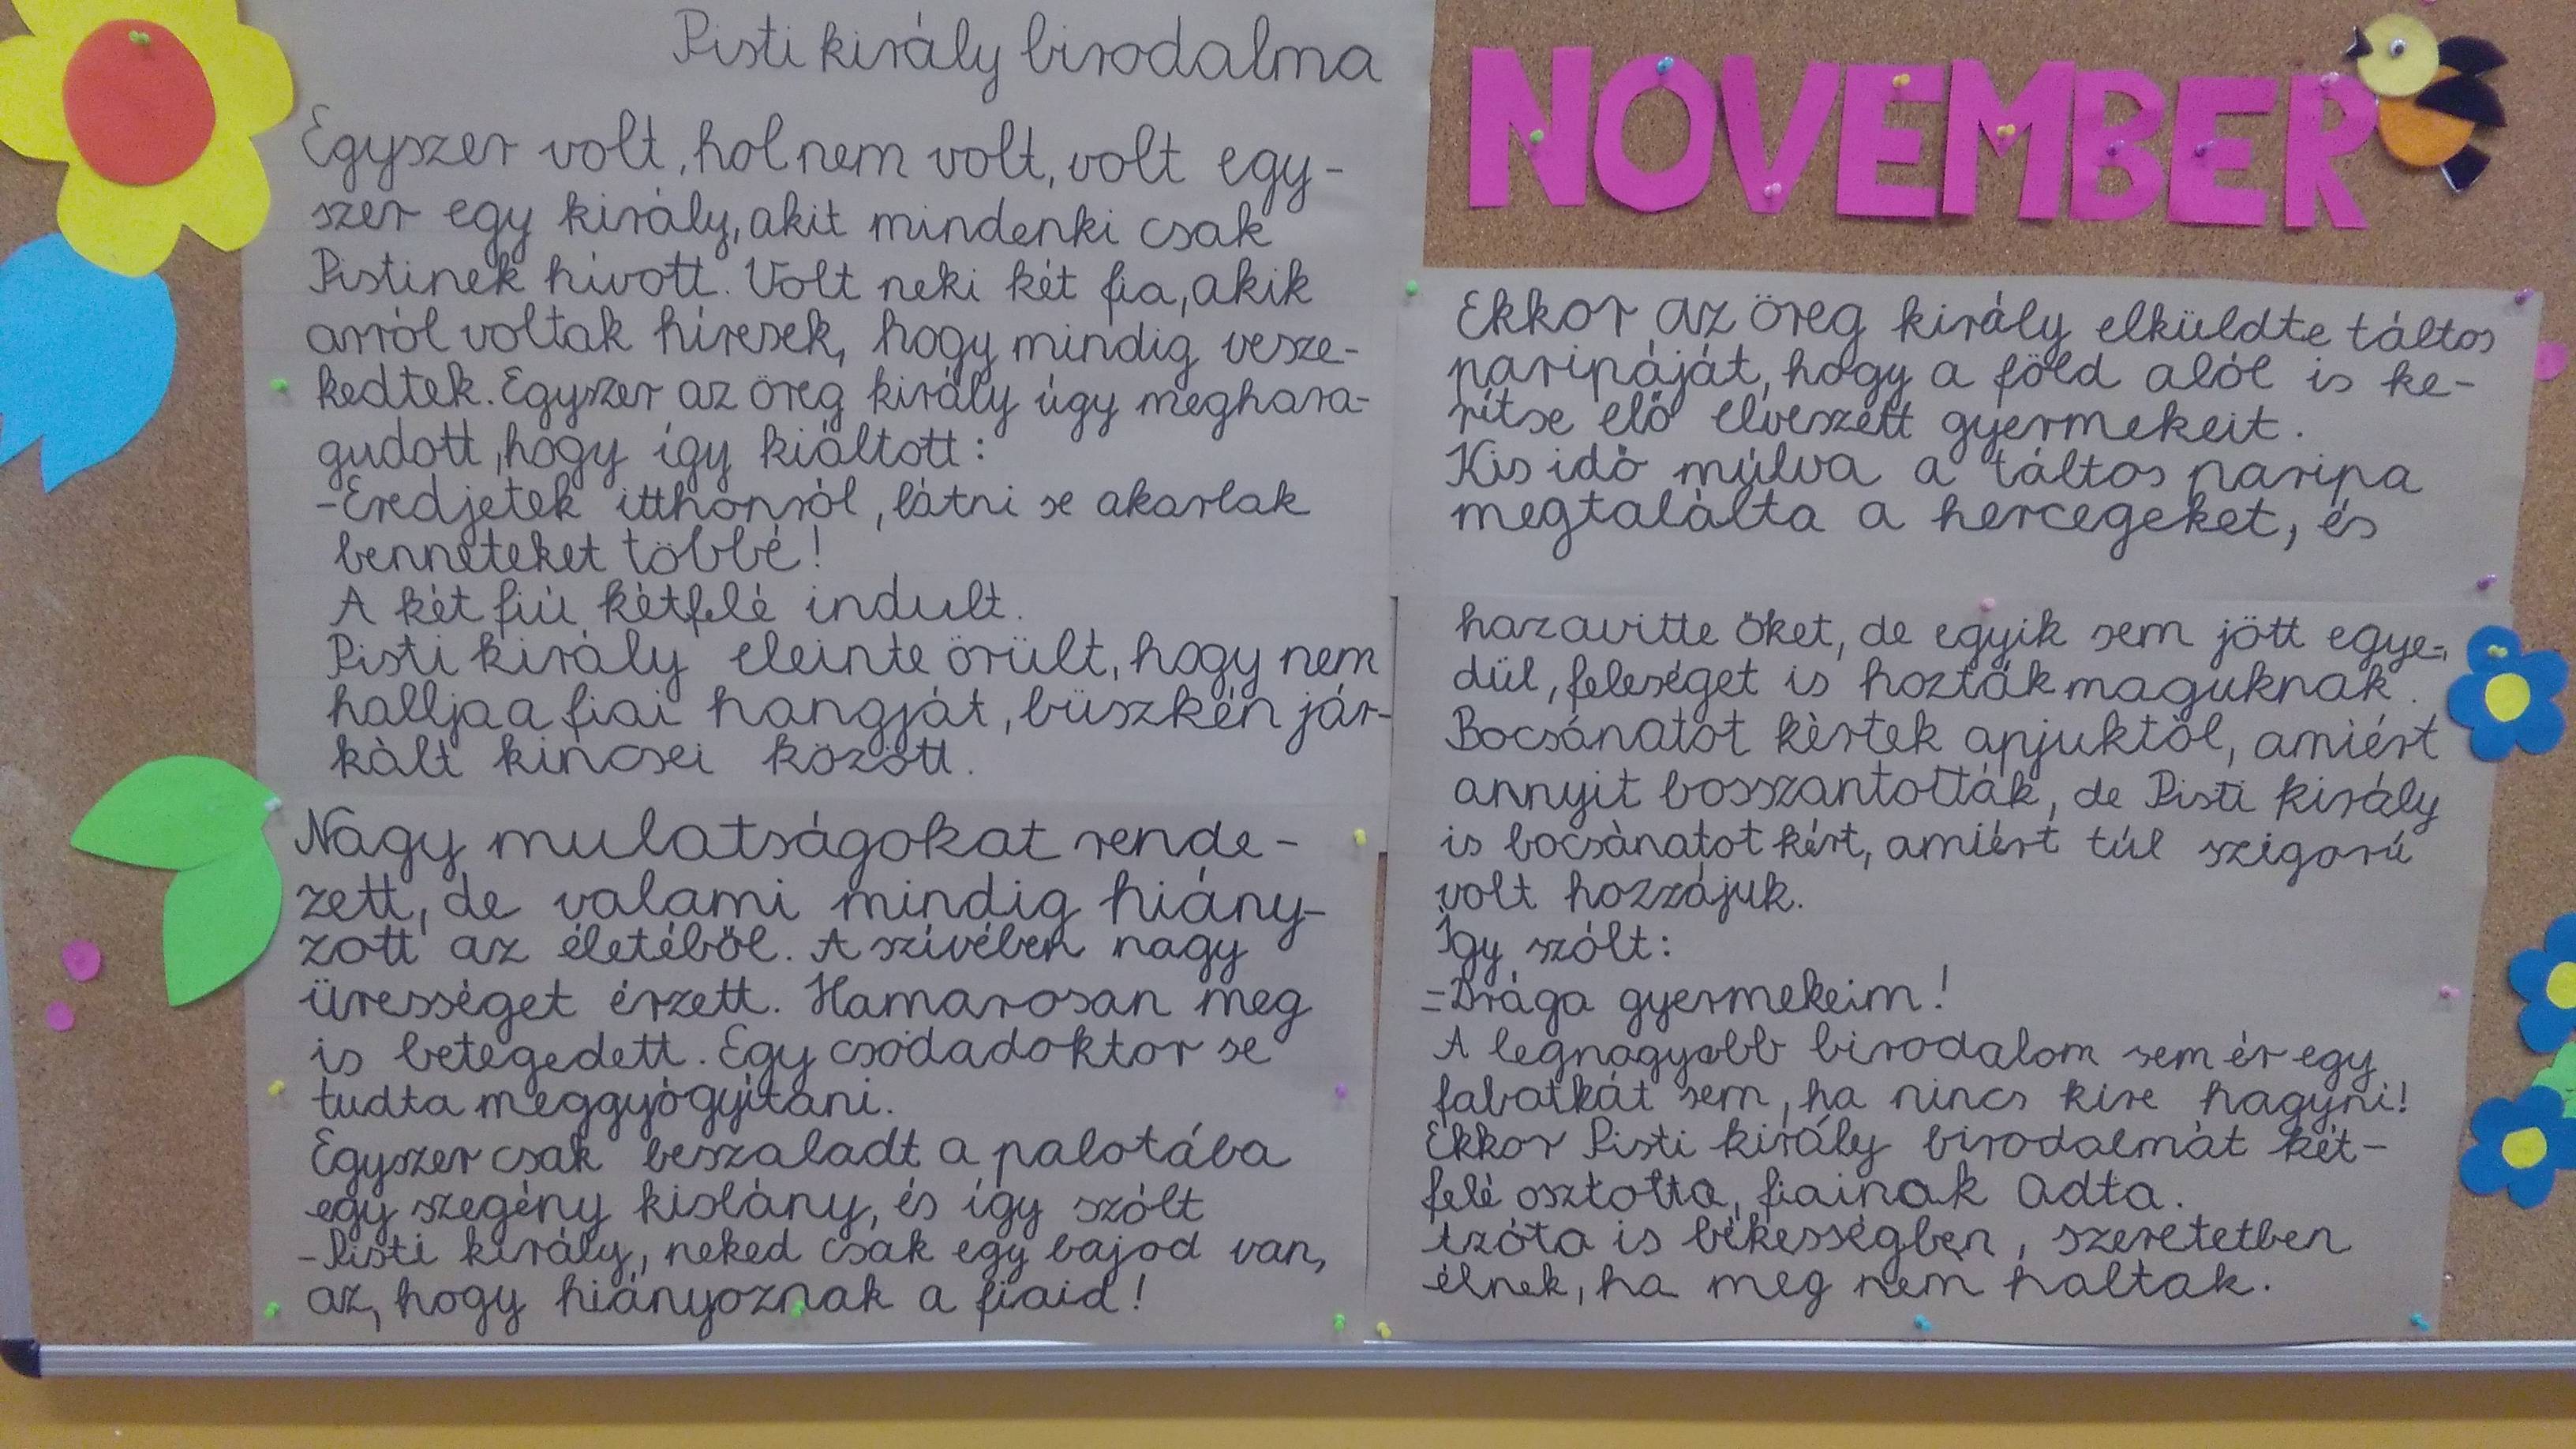 Pisti király birodalma
Egyszer volt, hol nem volt, volt egy-
szer egy király, akit mindenki csak
Pistinek hívott. Volt neki két fia, akik
arról voltak híresek, hogy mindig vesze-
kedtek. Egyszer az öreg király úgy meghara-
gudott, hogy így kiáltott:
-Eredjetek itthonról, látni se akarlak
benneteket többé!
A két fiú kétfelé indult.
Pisti király eleinte örült, hogy nem
hallja a fiai hangját, büszkén jár-
kált kincsei között.
Nagy mulatságokat rende-
zett, de valami mindig hiány-
zott az életéből. A szívében nagy
ürességet érzett. Hamarosan meg
is betegedett. Egy csodadoktor se
tudta meggyógyítani.
Egyszer csak beszaladt a palotába
egy szegény kislány, és így szólt
-Pisti király, neked csak egy bajod van,
az, hogy hiányoznak a fiaid!
NOVEMBER
Ekkor az öreg király elküldte táltos
paripáját, hogy a föld alól is ke-
rítse elő elveszett gyermekeit.
Kis idő múlva a táltos paripa
megtalálta a hercegeket, és
hazavitte őket, de egyik sem jött egye-
dül, feleséget is hoztak maguknak.
Bocsánatot kértek apjuktól, amiért
annyit bosszantották, de Pisti király
is bocsánatot kért, amiért túl szigorú
volt hozzájuk.
Így szólt:
-Drága gyermekeim!
A legnagyobb birodalom sem ér egy
fabatkát sem, ha nincs kire hagyni!
Ekkor Pisti király birodalmát két-
felé osztotta, fiainak adta.
Azóta is békességben, szeretetben
élnek, ha meg nem haltak.